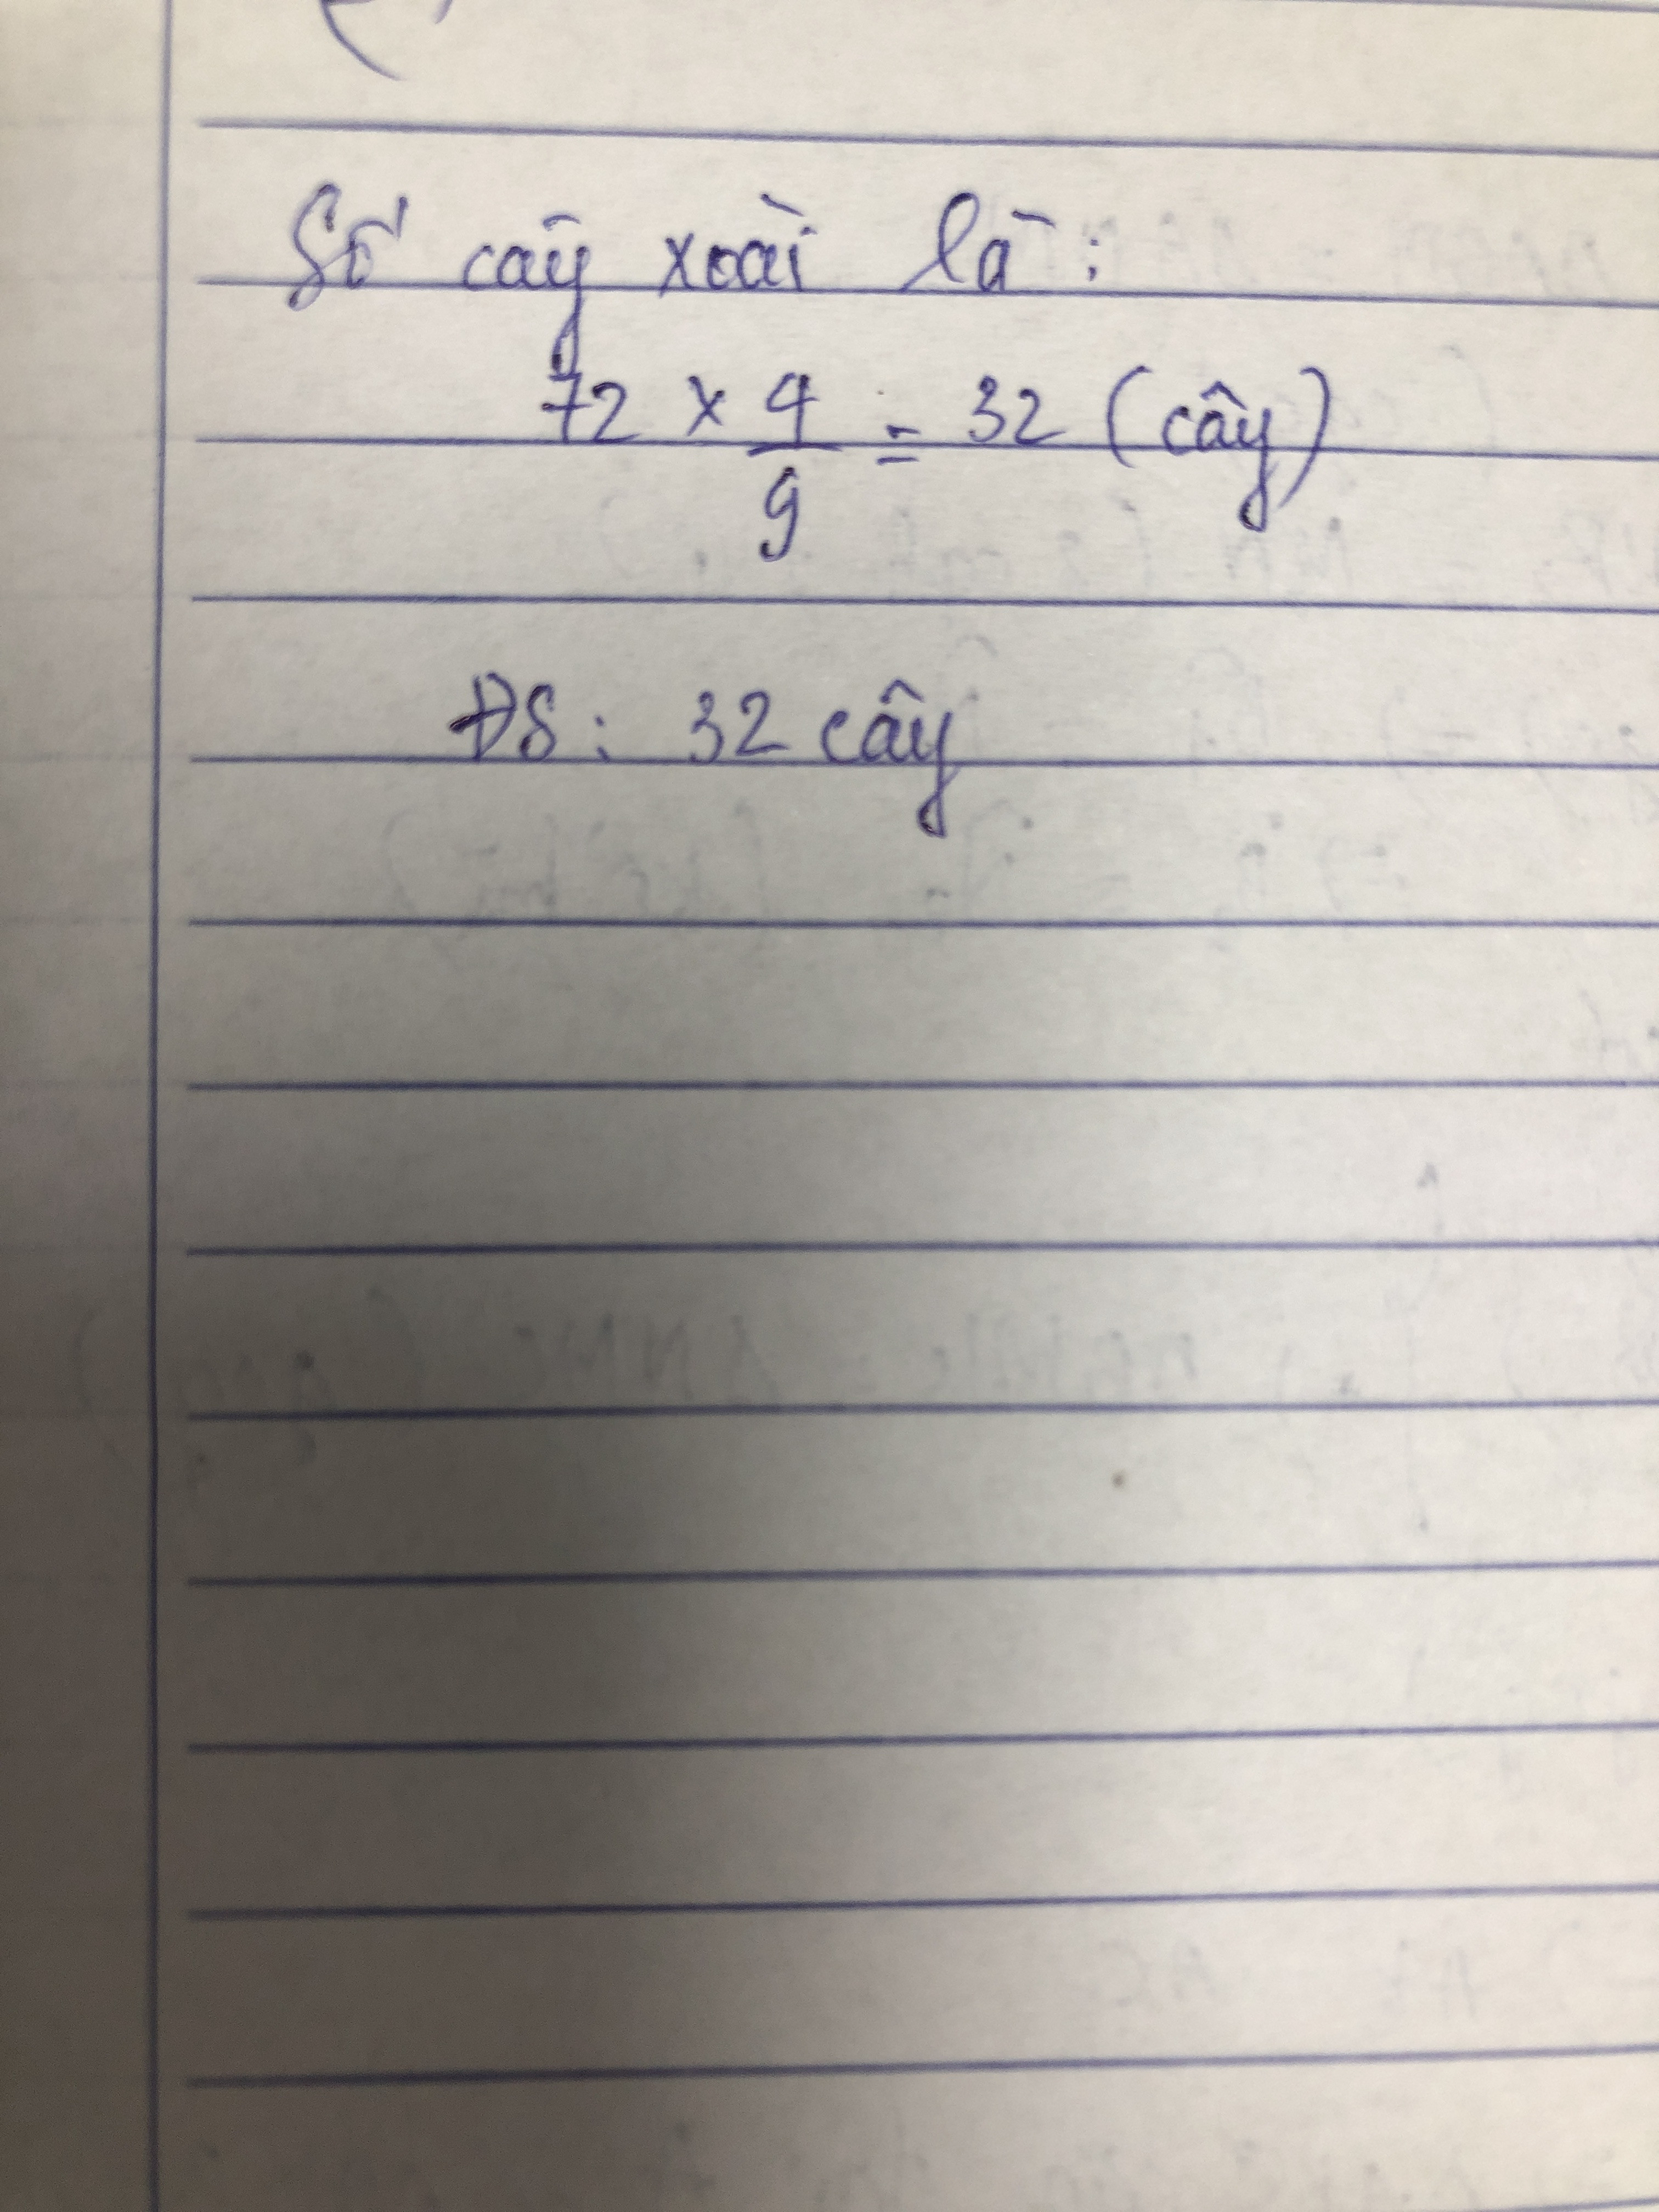 Số cây xoài là:
72 x 4/9 = 32 (cây)
ĐS: 32 cây